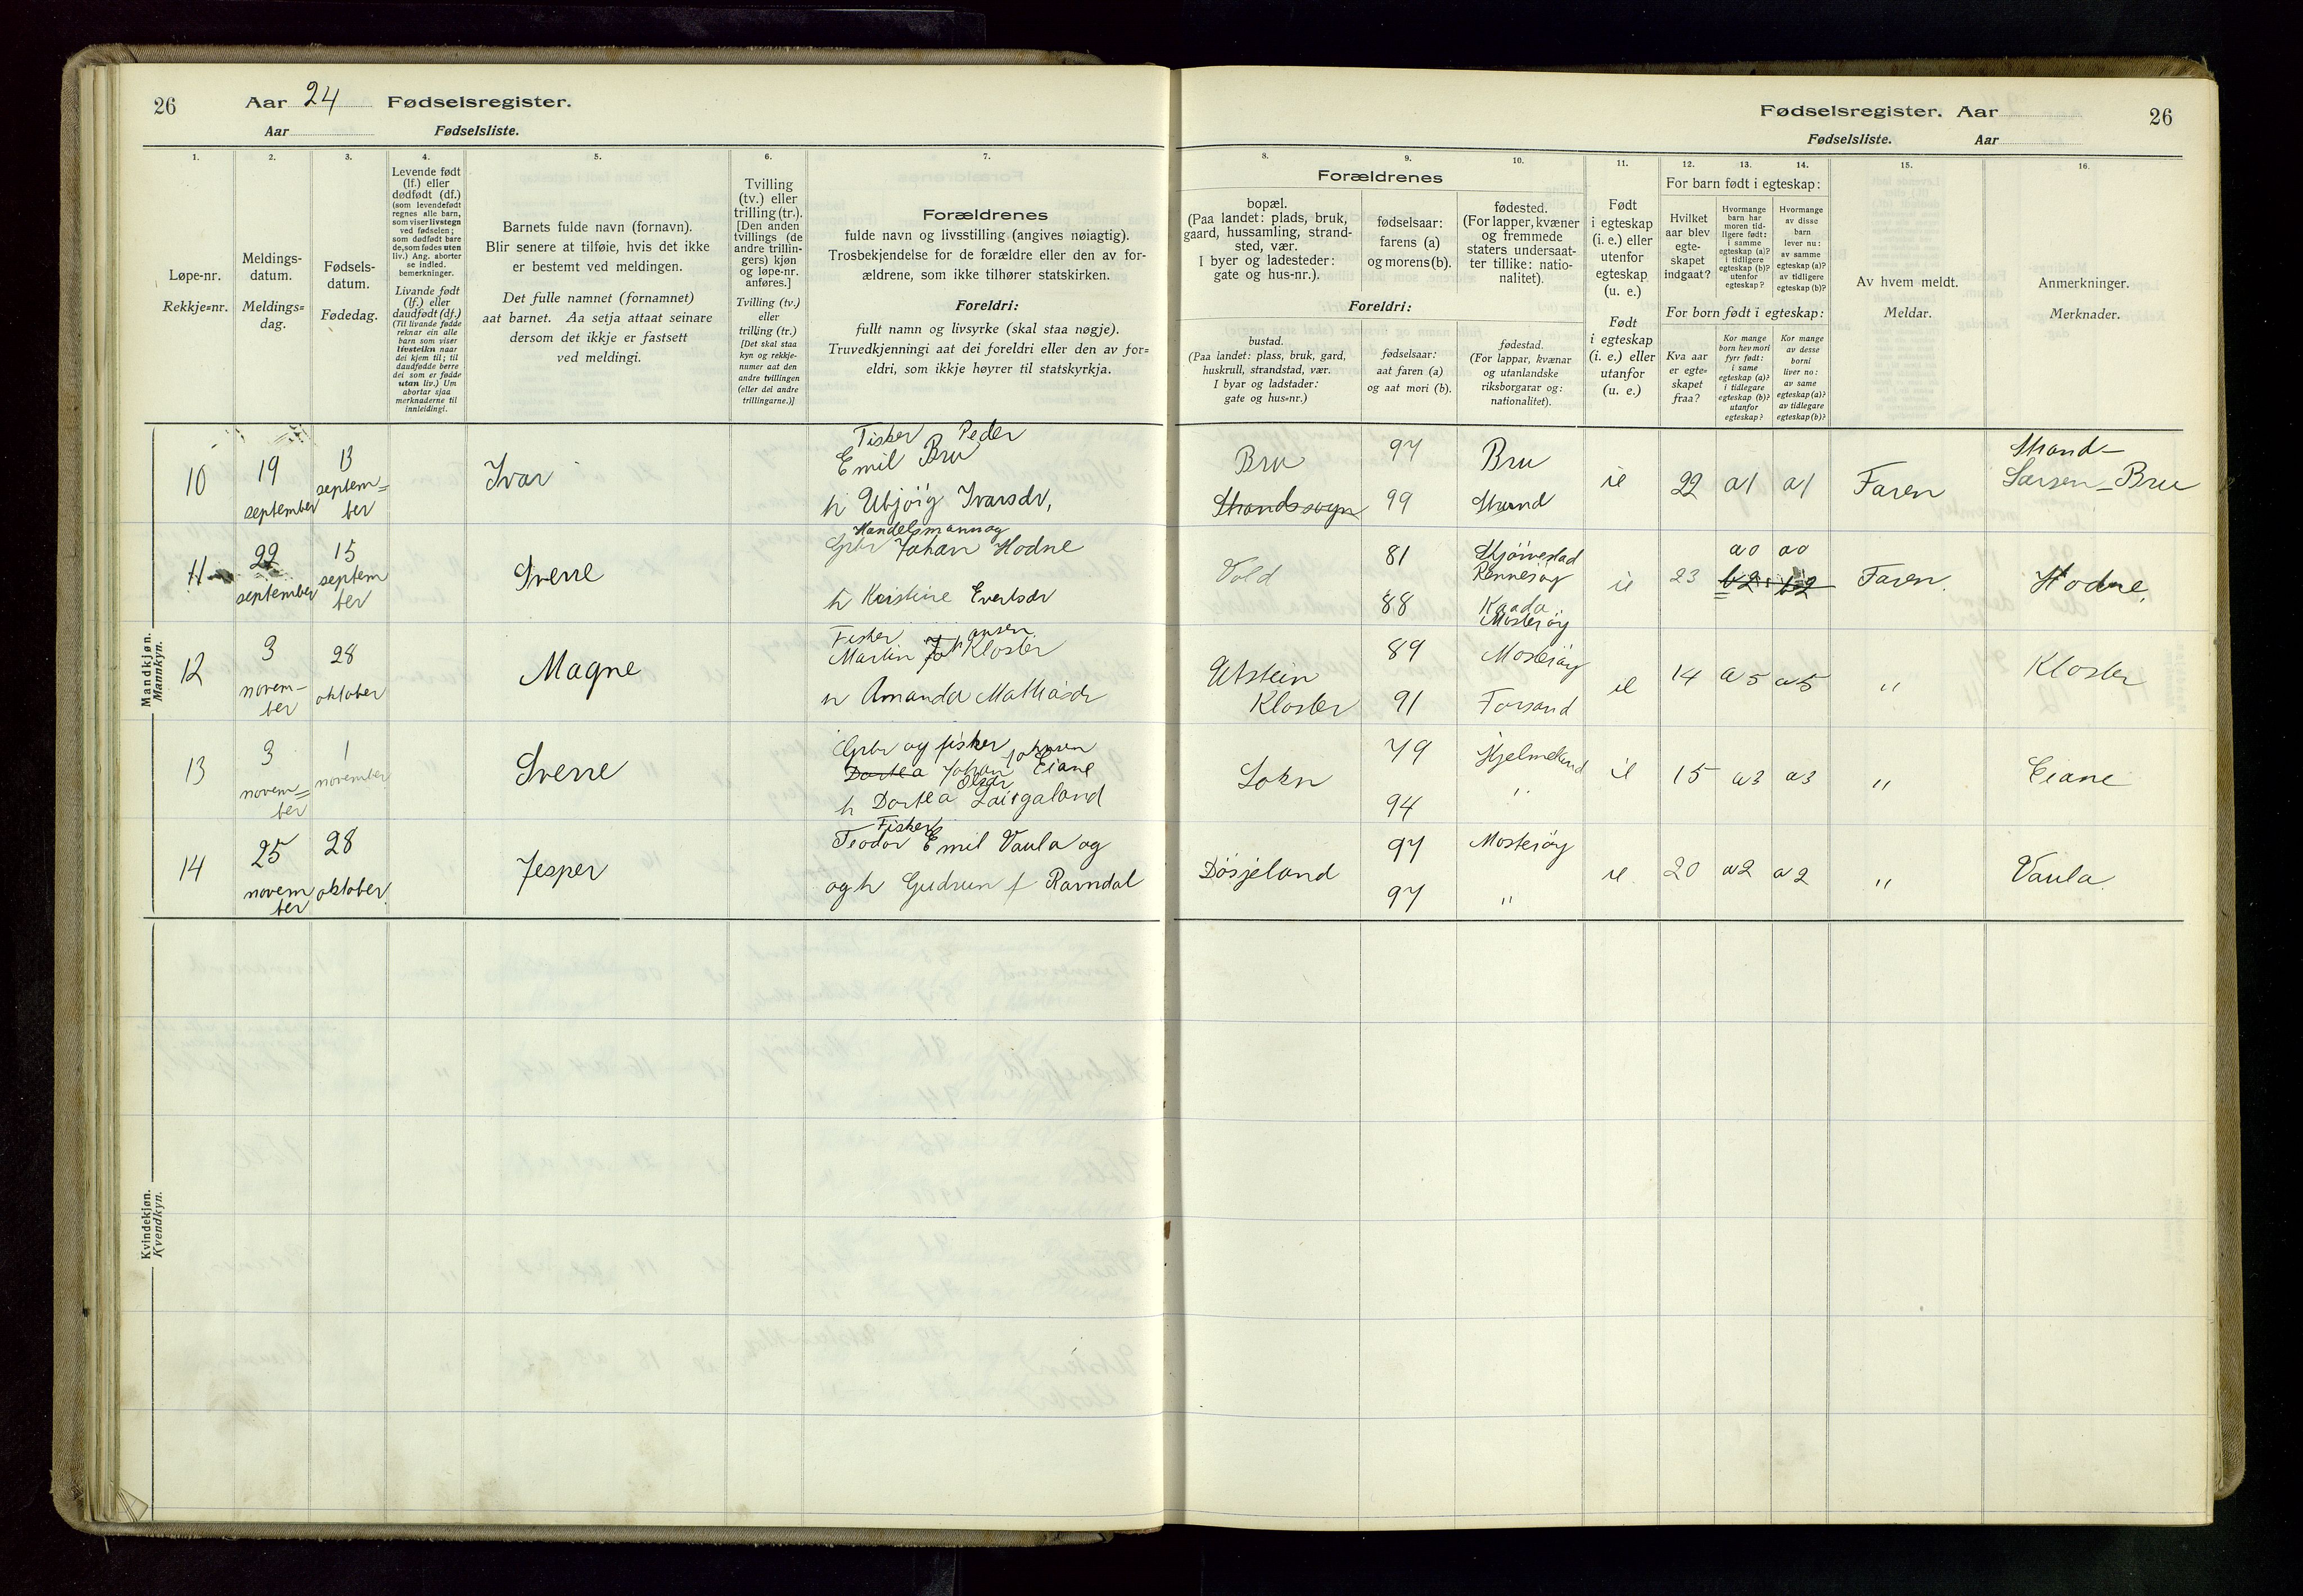 26 Aar 24 Fødselsregister.
Aar Fødselsliste.
1.
2.
3.
4.
5.
6.
7.
Løpe-nr.
Rekkje=nr.
Meldings-
datum.
Meldings=
dag.
Fødsels-
datum.
Fødedag.
Levende født
(lf.) eller
dødfødt (df.)
(som levendefødt
regnes alle barn,
som viser livstegn
ved fødselen;
som dødfødt bare
de, som fødes uten
liv.) Ang. aborter
se indled.
bemerkninger.
Livande født
(lf.) eller
daudfødt (df.)
(Til livande fødde
reknar ein alle
barn som viser
livsteikn naar
dei kjem til; til
daudfødde berre
dei som er fødde
utan liv.) Um
abortar sjaa
merknaderne til
innleidingi.
Barnets fulde navn (fornavn).
Blir senere at tilføie, hvis det ikke
er bestemt ved meldingen.
Det fulle namnet (fornamnet)
aat barnet. Aa setja attaat seinare
dersom det ikkje er fastsett
ved meldingi.
Tvilling
(tv.) eller
trilling (tr.).
[Den anden
tvillings (de
andre trillin-
gers) kjøn
og løpe-nr.
anføres.]
Tvilling (tv.)
eller
trilling (tr.)
[Det skal staa
kyn og rekkje-
numer aat den
andre tvillingen
(eller dei andre
trillingarne.)]
Forældrenes
fulde navn og livsstilling (angives nøiagtig).
Trosbekjendelse for de forældre eller den av for-
ældrene, som ikke tilhører statskirken.
Foreldri:
fullt namn og livsyrke (skal staa nøgje).
Truvedkjenningi aat dei foreldri eller den av for=
eldri, som ikkje høyrer til statskyrkja.
Mandkjøn.
Mannkyn.
10
19
september
13
septem=
ber
Ivar
Fisker Peder
Emil Bru
h Ubjörg Ivarsdr,
11
22
september
15
septem
ber
Sverre
Handelsmann og
Grbr Johan Hodne
h Kristine Evertsdr
12
3
novem-
ber
28
oktober
Magne
Fisker ansen
Martin Joh Kloster
h Amanda Mathiasdr
13
3
novem=
ber
1
november
Sverre
Grbr og fisker Johnsen
Dortea Johan Eiane
h Dortea Laugaland
14
25
novem
ber
28
oktober
Jesper
Fisker
Teodor Emil Vaula og
og h Gudrun f Ramndal
Kvindekjøn.
Kvendkyn.
Fødselsregister. Aar 26
Fødselsliste. Aar
8.
9.
10.
11.
12.
13.
14.
15.
16.
Forældrenes
bopæl.
(Paa landet: plads, bruk,
gaard, hussamling, strand-
sted, vær.
I byer og ladesteder:
gate og hus-nr.).
fødselsaar:
farens (a)
og morens (b).
fødested.
(For lapper, kvæner
og fremmede
staters undersaat-
ter tillike: natio-
nalitet).
Foreldri:
bustad.
(Paa landet: plass, bruk, gard,
huskrull, strandstad, vær.
I byar og ladstader:
gate og hus=nr.)
fødselsaar:
aat faren (a)
og aat mori (b).
fødestad.
(For lappar, kvænar
og utanlandske
riksborgarar og:
nationalitet).
Født
i egteskap
(i. e.) eller
utenfor
egteskap
(u. e.)
Født
i egteskap
(i. e.) eller
utanfor
(u. e.)
For barn født i egteskap:
Hvilket
aar blev
egte-
skapet
indgaat?
Hvormange
barn har
moren tid-
ligere født:
i samme
egteskap (a)?
i tidligere
egteskap (b)?
utenfor
egteskap?
Hvormange
av disse
barn
lever nu:
av samme
egteskap (a)?
av tidligere
egteskap (b)?
For born født i egteskap:
Kva aar
er egte=
skapet
fraa?
Kor mange
born hev mori
fyrr født:
i same
egteskap (a)?
i tidlegare
egteskap (b)?
utanfor
egteskap?
Kor mange
av desse
borni
liver no:
av same
egteskap (a)?
av tidlegare
egteskap (b)?
Av hvem meldt.
Meldar.
Anmerkninger.
Merknader.
Bru
Strandssogn
97
99
Bru
Strand
ie
22
a1
a1
Faren
Strand-
Larsen - Bru
Vold
81
88
Rennesöy
Kaada
Mosteröy
ie
23
a0
b2
a0
b2
Faren.
Hodne,
Utstein
Kloster
89
91
Mosteröy
Forsand
ie
14
a5
a5
"
Kloster
Sokn
79
94
Hjelmeland
"
ie
15
a3
a3
"
Eiane
Dösjeland
97
97
Mosteröy
"
ie
20
a2
a2
"
Vaula.